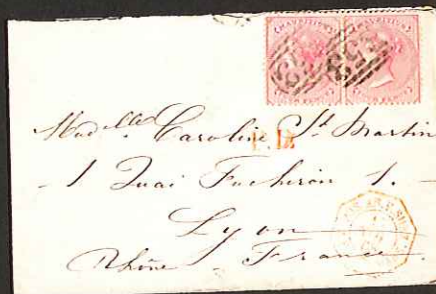 MAURITIUS MAURITIUS
Madlle Caroline St Martin
P.D.
- 1 Quai Fulchiron 1. -
Lyon
Rhône France